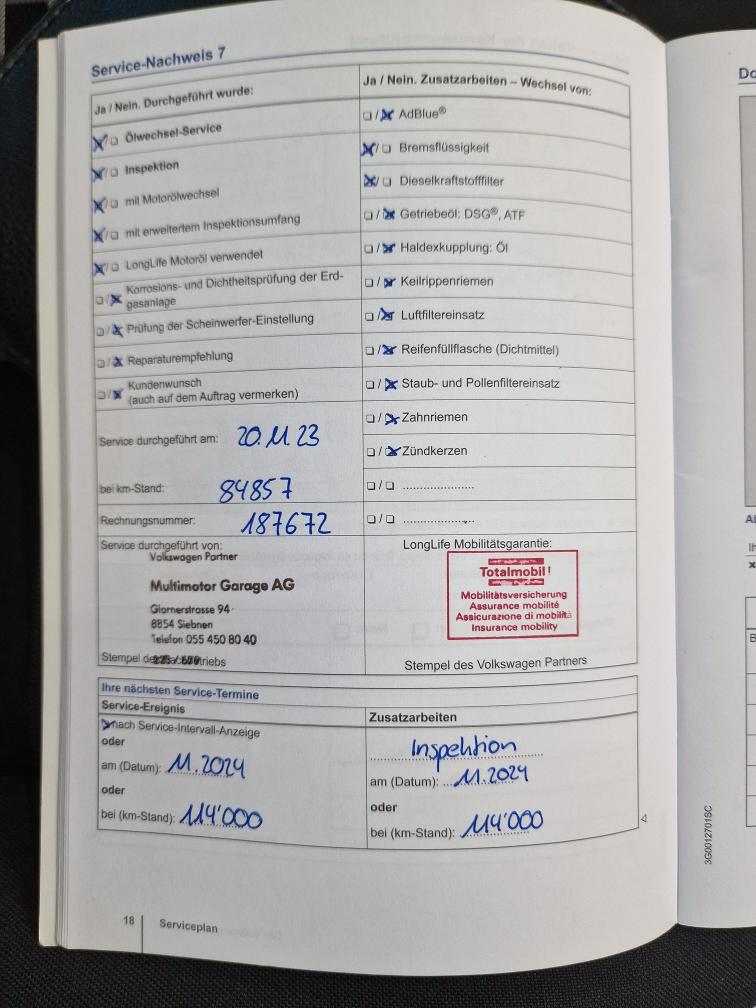 Service-Nachweis 7
Ja / Nein. Durchgeführt wurde:
Ölwechsel-Service
Inspektion
mit Motorölwechsel
mit erweitertem Inspektionsumfang
LongLife Motoröl verwendet
Korrosions- und Dichtheitsprüfung der Erd-
gasanlage
Prüfung der Scheinwerfer-Einstellung
Reparaturempfehlung
Kundenwunsch
(auch auf dem Auftrag vermerken)
Service durchgeführt am: 20.11.23
bei km-Stand: 84857
Rechnungsnummer: 187672
Service durchgeführt von:
Volkswagen Partner
Multimotor Garage AG
Glarnerstrasse 94
8854 Siebnen
Telefon 055 450 80 40
Stempel des
Ja / Nein. Zusatzarbeiten – Wechsel von:
AdBlue®
Bremsflüssigkeit
Dieselkraftstofffilter
Getriebeöl: DSG®, ATF
Haldexkupplung: Öl
Keilrippenriemen
Luftfiltereinsatz
Reifenfüllflasche (Dichtmittel)
Staub- und Pollenfiltereinsatz
Zahnriemen
Zündkerzen
LongLife Mobilitätsgarantie:
Totalmobil!
Mobilitätsversicherung
Assurance mobilité
Assicurazione di mobilità
Insurance mobility
Stempel des Volkswagen Partners
Ihre nächsten Service-Termine
Service-Ereignis
nach Service-Intervall-Anzeige
oder
am (Datum): 11.2024
oder
bei (km-Stand): 114'000
Zusatzarbeiten
Inspektion
am (Datum): 11.2024
oder
bei (km-Stand): 114'000
18 Serviceplan
3G0012701SC